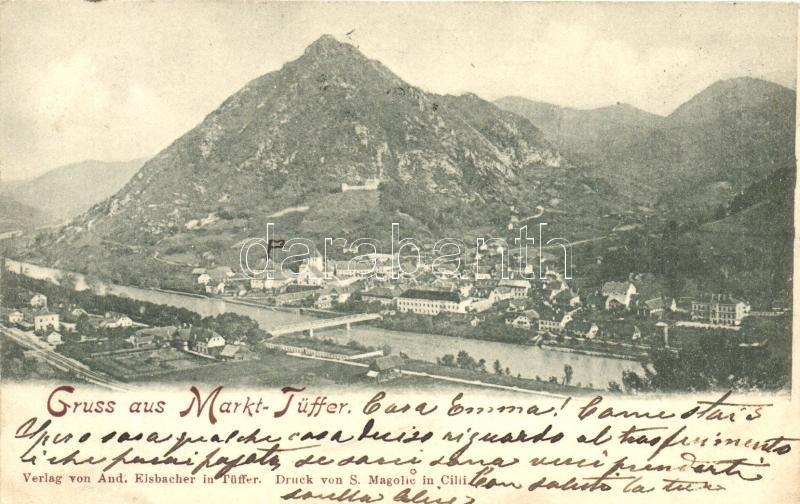 darabanth
Gruss aus Markt-Tüffer. Cara Emma! Come stai?
Spero sarà qualche cosa deciso riguardo al trasferimento
che pagata se sarò sana verrò prenderti
Verlag von And. Elsbacher in Tüffer. Druck von S. Magolic in Cilli. Con saluto la tua
sorella Alice